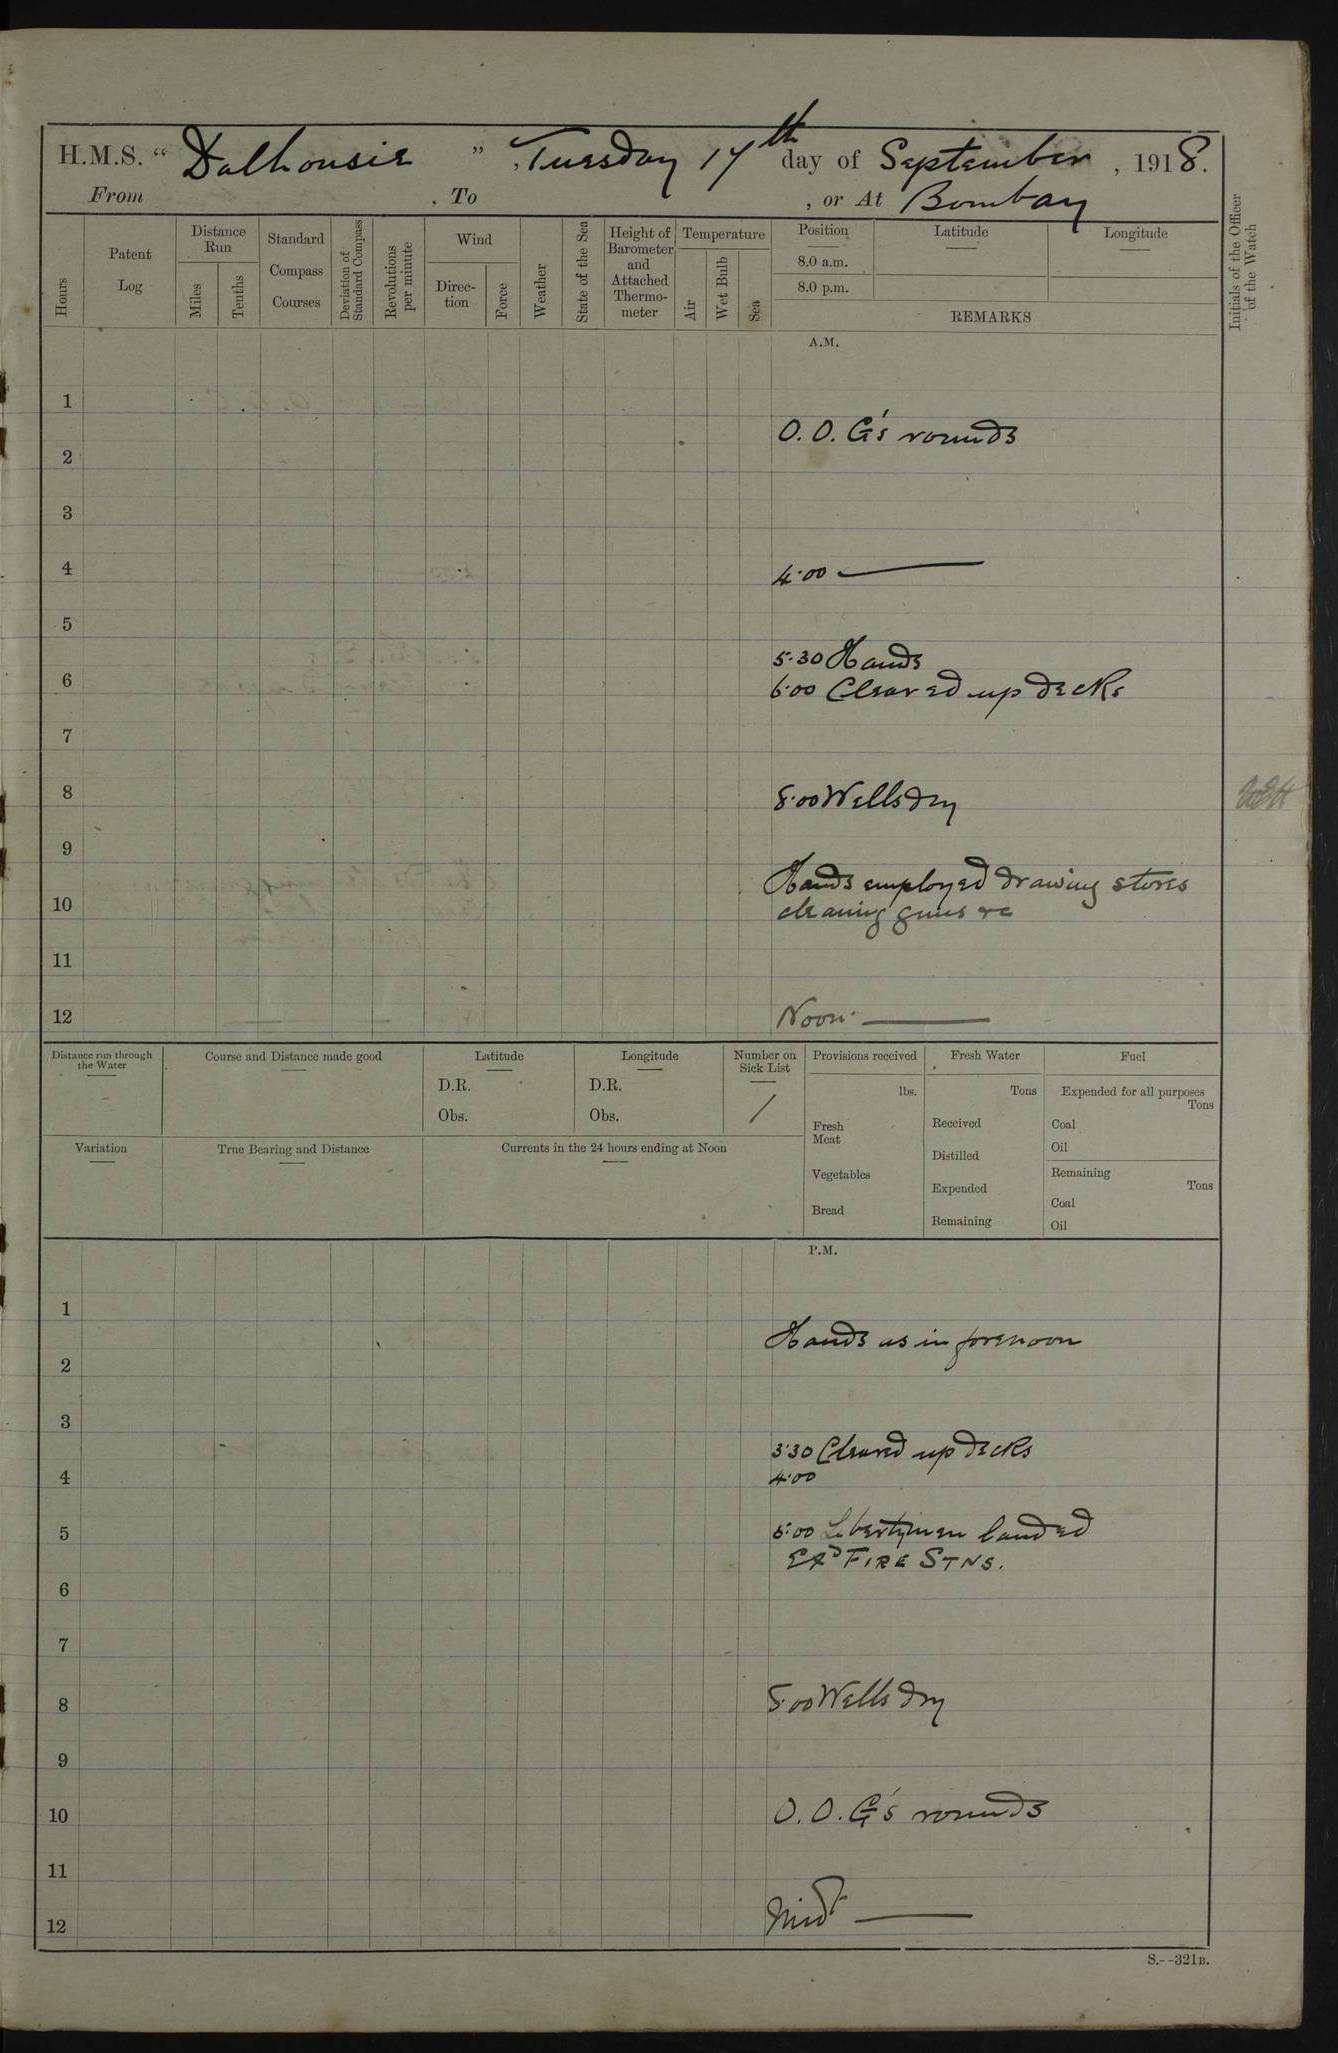 H.M.S. "Dalhousie", Tuesday 17th day of September, 1918.
From , To , or At Bombay
Hours
Patent Log
Distance Run
Miles
Tenths
Standard Compass Courses
Deviation of Standard Compass
Revolutions per minute
Wind
Direction
Force
Weather
State of the Sea
Height of Barometer and Attached Thermometer
Temperature
Air
Wet Bulb
Sea
Position
8.0 a.m.
8.0 p.m.
Latitude
Longitude
REMARKS
Initials of the Officer of the Watch
A.M.
1
O.O.G's rounds
2
3
4 4.00
5
5.30 Hands
6 6.00 Cleared up decks
7
8 8.00 Wells dry
9
Hands employed drawing stores
10 cleaning guns &c
11
12 Noon.
Distance run through the Water
Course and Distance made good
Latitude
D.R.
Obs.
Longitude
D.R.
Obs.
Number on Sick List
1
Provisions received
lbs.
Fresh Meat
Vegetables
Bread
Fresh Water
Tons
Received
Distilled
Expended
Remaining
Fuel
Expended for all purposes
Tons
Coal
Oil
Remaining
Tons
Coal
Oil
Variation
True Bearing and Distance
Currents in the 24 hours ending at Noon
P.M.
1
Hands as in forenoon
2
3
3.30 Cleared up decks
4 4.00
5 5.00 Libertymen landed
EXD FIRE STNS.
6
7
8 8.00 Wells dry
9
10 O.O.G's rounds
11
12 Midt
S.--321B.